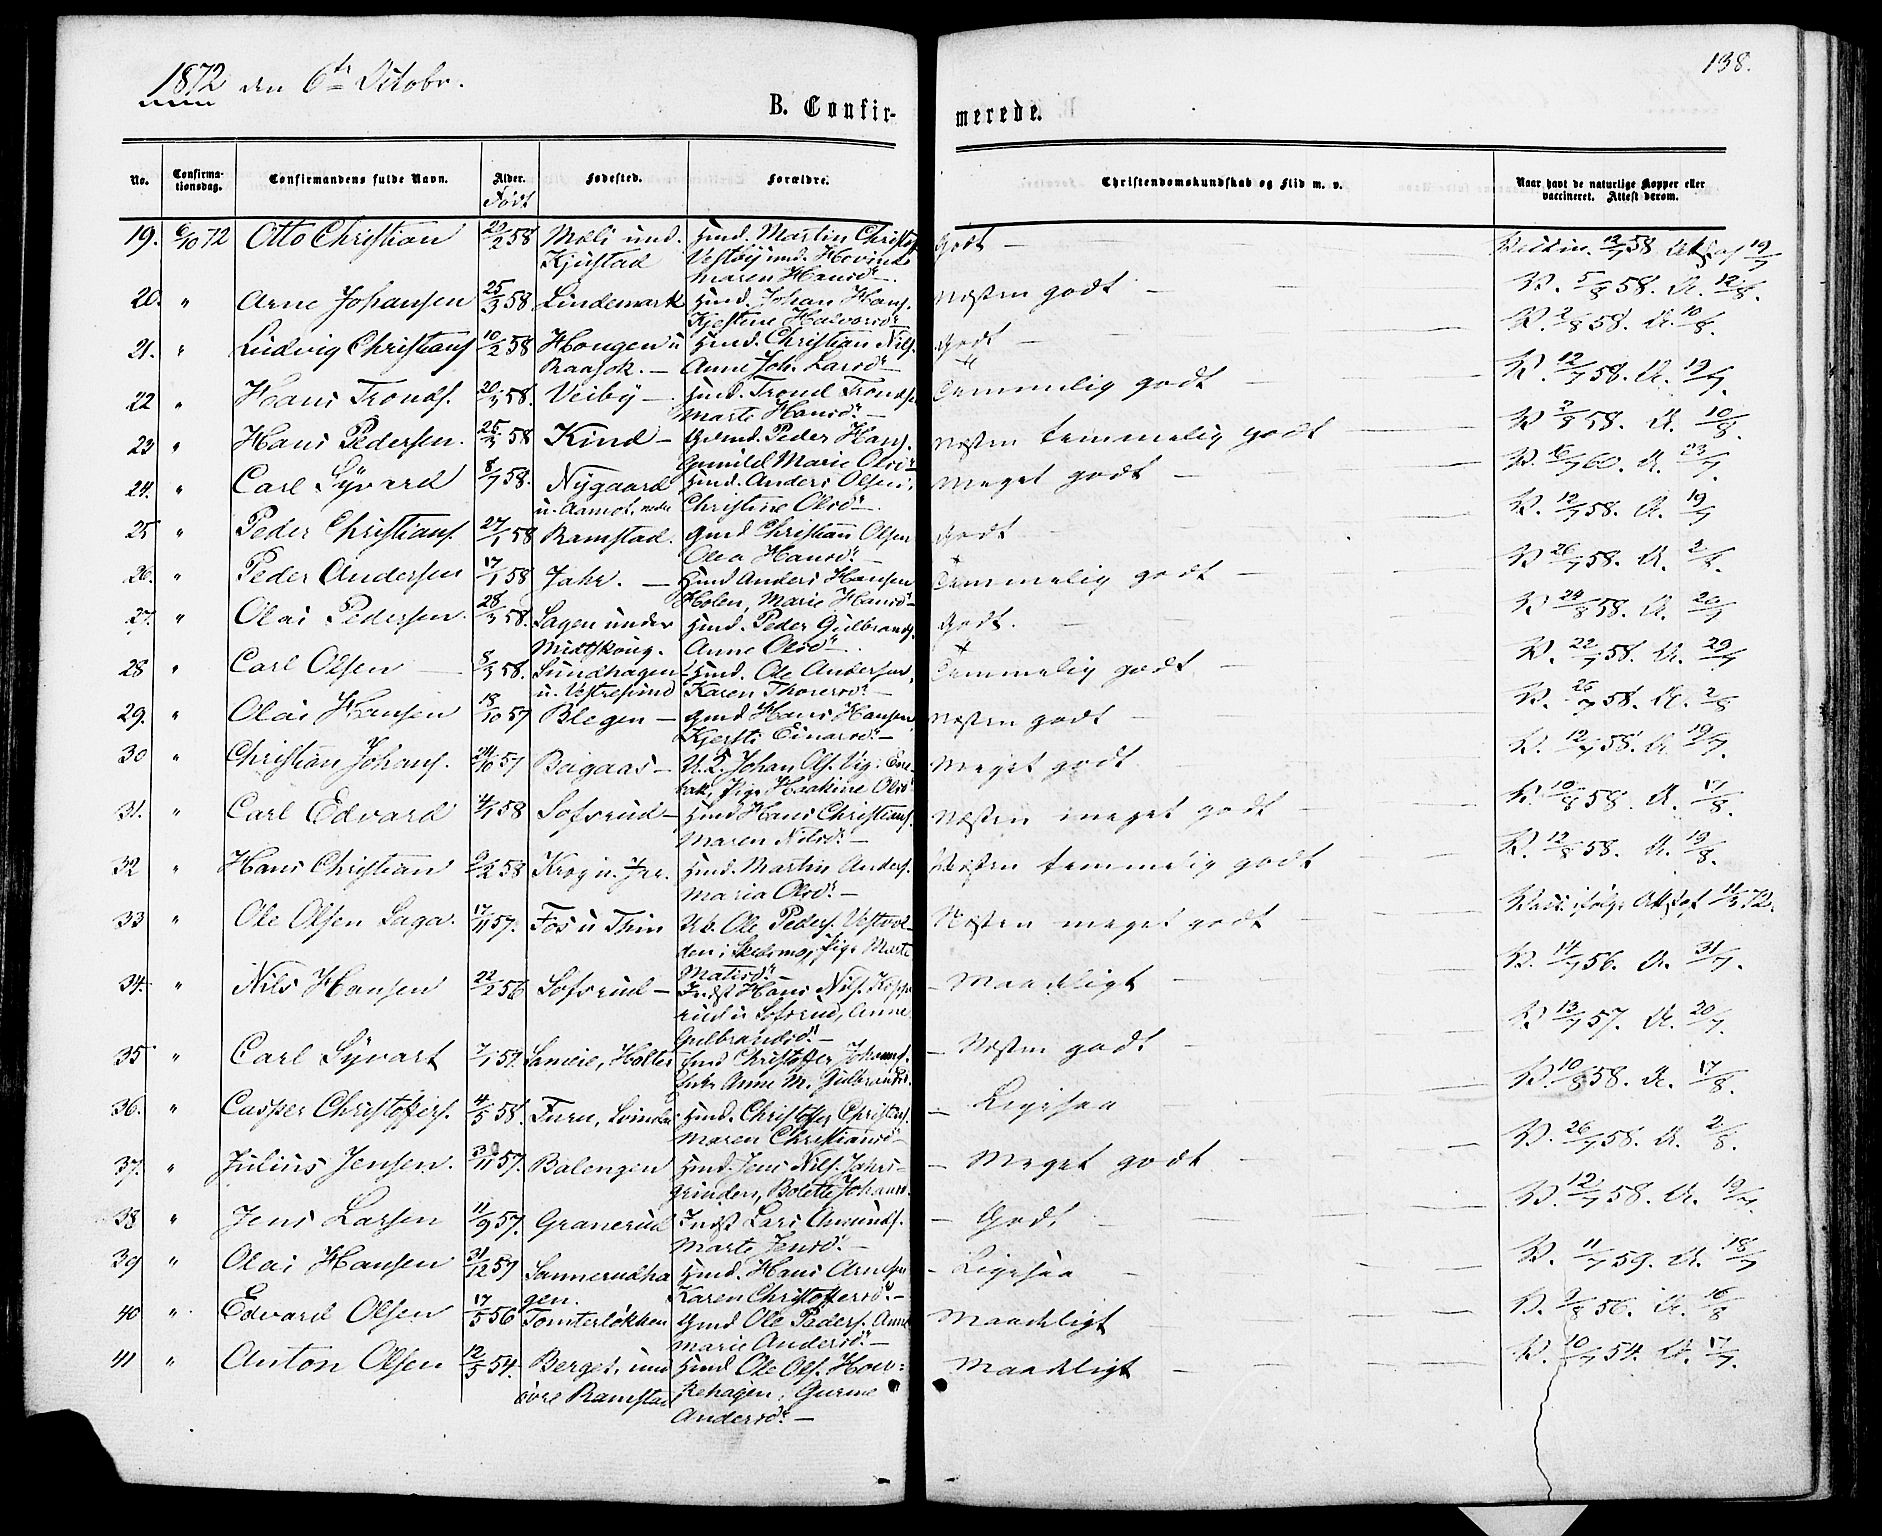 1872 den 6te Octobr.
138.
B. Confir-
merede.
No.
Confirma-
tionsdag.
Confirmandens fulde Navn.
Alder.
Født
Fødested.
Forældre.
Christendomskundskab og Flid m. v.
Naar havt de naturlige Kopper eller
vaccineret. Attest derom.
19. 6/10 72 Otto Christian 20/2 58 Mæli und. Hmd. Martin Christof Godt — 12/7 58 Att. af 19/7
Kjustad Vestby und. Hovind
Maren Hansd. —
20. " Arne Johansen 25/3 58 Lindemark Hmd. Johan Hans. Næsten godt — V. 5/8 58. A. 12/8.
Kjestine Halvorsd. —
21. " Ludvig Christians 10/2 58 Haugen u Hmd. Christian Nils. Godt — V. 2/8 58. A. 10/8.
Raasok. — Anne Joh. Larsd. —
22 " Hans Tronds. 20/3 58. Veiby — Hmd. Trond Tronds. Temmelig godt — V. 12/7 58. A. 19/7.
Marte Hansd. —
23 " Hans Pedersen. 25/3 58 Kind — Gmd. Peder Hans. Næsten temmelig godt — V. 2/8 58. A. 10/8.
Gunild Marie Olsd.
24. " Carl Syvard 8/7 58. Nygaard Hmd. Anders Olsen, Meget godt — V. 16/7 60. A. 23/7.
u. Aamot, nedre Christine Olsd. —
25 " Peder Christians. 27/1 58 Ramstad. Gmd Christian Olsen Godt — V. 12/7 58. A. 19/7
Olea Hansd.
26. " Peder Andersen 17/1 58 Jahr. — Hmd Anders Hansen Temmelig godt — V. 26/7 58. A. 2/8.
Holen, Marie Hansd. —
27. " Olai Pedersen. 28/3 58. Sagen under Hmd. Peder Gulbrands. Godt. — 58. A. 20/7
Midtskoug. Anne Olsd.
28 " Carl Olsen — 8/3 58. Sundhagen Hmd. Ole Andersen, Temmelig godt — V. 22/7 58. A. 29/7
u. Vestresund Karen Thoresd. —
29. " Olai Hansen 18/10 57 Blegen — Gmd Hans Hansen Næsten godt — V. 26/7 58. A. 2/8
Kjersti Einarsd. —
30 " Christian Johans. 24/10 57 Bøigaas — Johan Ols. Meget godt — V. 12/7 58. A 19/7.
Pige Haakine Olsd.
31. " Carl Edvard 4/1 58 Sofsrud — Hmd Hans Christians. Næsten meget godt — V. 10/8 58. A. 17/8.
Maren Nilsd. —
32 " Hans Christian 9/2 58 Krog u. Hmd. Martin Anders. Næsten temmelig godt — V. 12/8 58. A. 19/8.
Maria Olsd. —
33 " Ole Olsen Saga. 17/11 57. Fos u Thin Ub. Ole Peders. Næsten meget godt — Vacc. ifølge Att. af 72.
i Skedsmo, Pige Marte
Matisd. —
34. " Nils Hansen 22/2 56 Sofsrud — Indst Hans Nils. — Maadeligt — V. 14/7 56. A. 31/7.
rud u Sofsrud, Anne
Gulbrandsd. —
35 " Carl Syvart 7/1 57. Holter Hmd Christoffer Johans. — Næsten godt — V. 13/7 57. A. 20/7.
Anne M. Gulbrandsd.
36. " Casper Christoffers. 4/5 58. Furu, Hmd. Christoffer Christians. — Ligesaa — V. 10/8 58. A. 17/8.
Maren Christiansd. —
37. " Julius Jensen. 57. Balengen Hmd. Jens Nils. Jahrs- — Meget godt — V. 26/7 58. A. 2/8.
grinden, Bolette Johansd.
38 " Jens Larsen 11/9 57. Granerud Indst Lars Amunds. — Godt — V. 12/7 58. A. 19/7.
Marte Jensd. —
39 " Olai Hansen 31/12 57 Sannerudha Hmd. Hans Arnesen — Ligesaa — V. 11/7 59. A. 18/7
gen. Karen Christoffersd. —
40 " Edvard Olsen 17/5 56 Tomterløkken Gmd Ole Peders. Anne Maadeligt — V. 9/8 56. A. 16/8
Marie Andersd. —
41 " Anton Olsen 12/5 54. Berget, und Hmd Ole Ols. Maadeligt — V. 10/7 54. A. 17/7.
øvre Ramstad kehagen, Gurine
Andersd. —